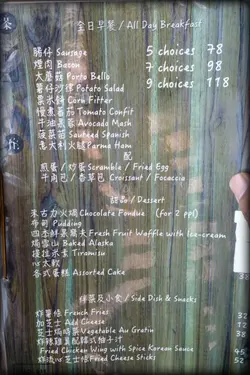 全日早餐 / All Day Breakfast
腸仔 Sausage 5 choices 78
煙肉 Bacon 7 choices 98
大蘑菇 Porto Bello 9 choices 118
薯仔沙律 Potato Salad
粟米餅 Corn Fitter
慢煮番茄 Tomato Confit
牛油果蓉 Avocado Mash
菠菜苗 Sauteed Spanish
意大利火腿 Parma Ham
配
煎蛋 / 炒蛋 Scramble / Fried Egg
牛角包 / 香草包 Croissant / Focaccia
甜品 / Dessert
朱古力火鍋 Chocolate Fondue (for 2 ppl)
布甸 Pudding
四季鮮果窩夫 Fresh Fruit Waffle with Ice-cream
焗雪山 Baked Alaska
提拉米蘇 Tiramisu
心太軟
各式蛋糕 Assorted Cake
伴菜及小食 / Side Dish & Snacks
炸薯條 French Fries 32
加芝士 Add Cheese 12
芝士焗時菜 Vegetable Au Gratin 38
Fried Chicken Wing with Spice Korean Sauce 45
炸流心芝士條 Fried Cheese Sticks 52